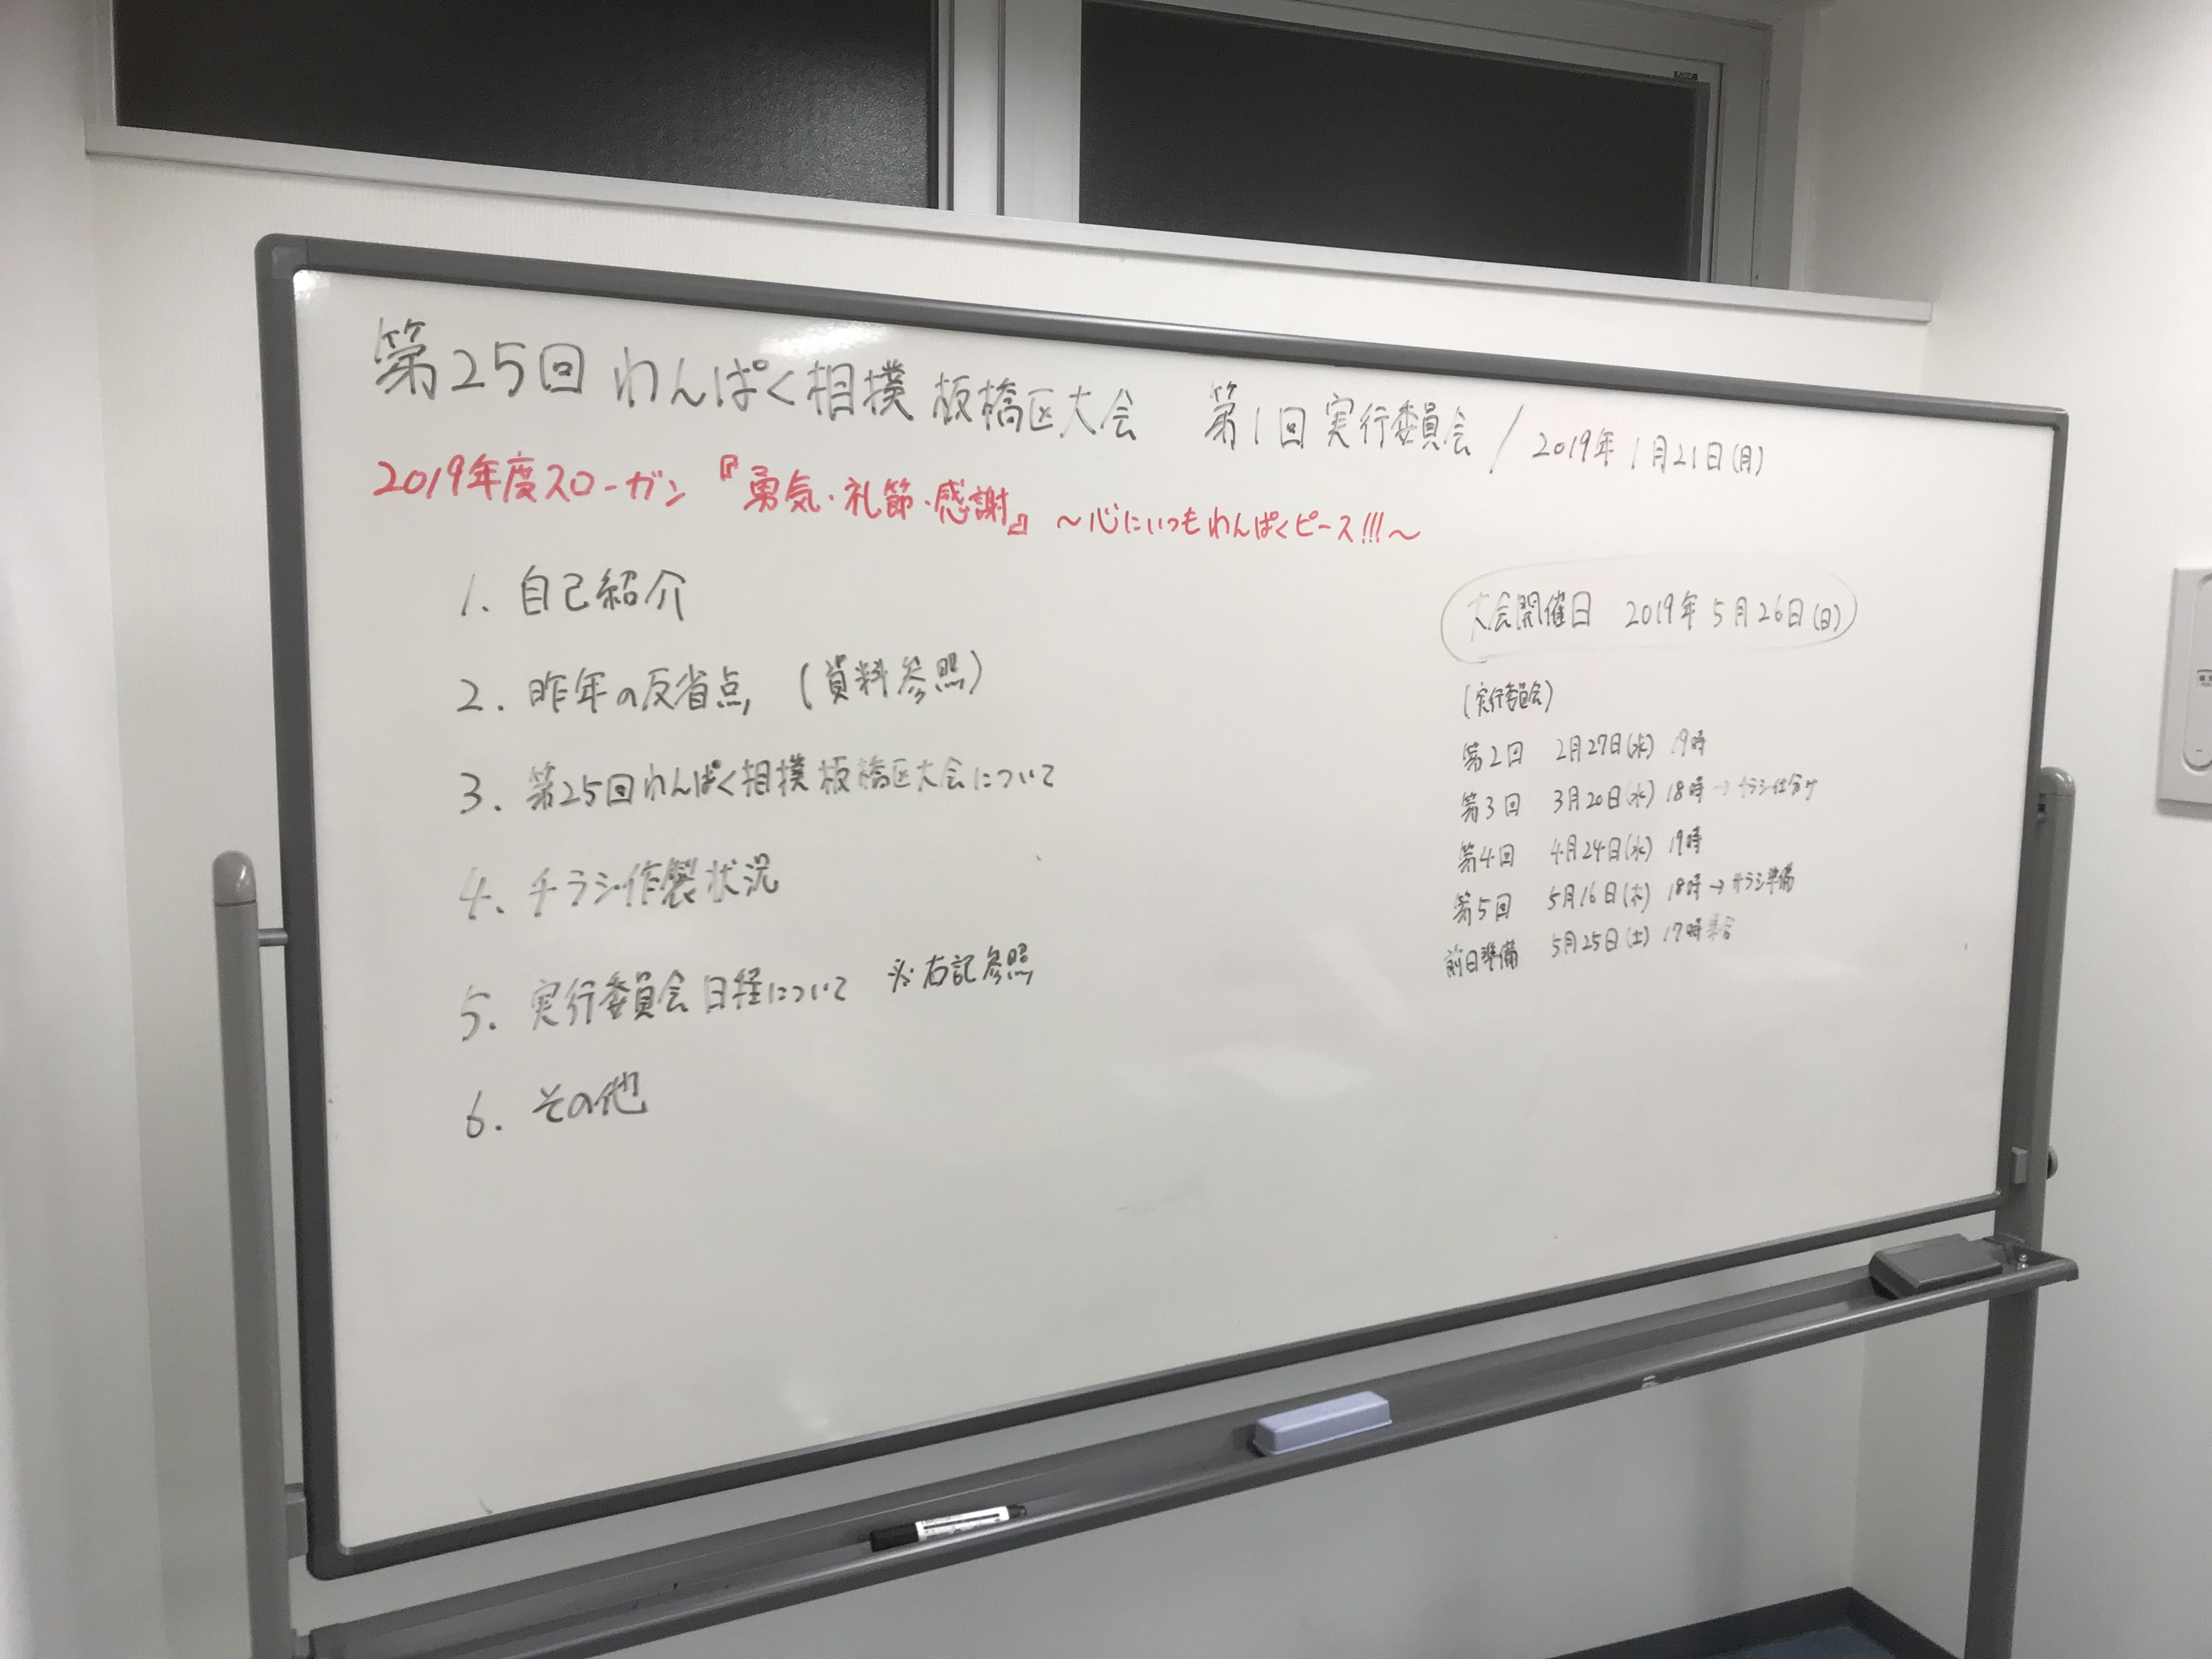 第25回 わんぱく相撲 板橋区大会 第1回 実行委員会 / 2019年 1月21日(月)
2019年度スローガン 『勇気・礼節・感謝』 〜心にいつもわんぱくピース!!!〜
1. 自己紹介
2. 昨年の反省点 (資料参照)
3. 第25回わんぱく相撲 板橋区大会について
4. チラシ作製状況
5. 実行委員会日程について ※右記参照
6. その他
大会開催日 2019年5月26日(日)
(実行委員会)
第2回 2月27日(水) 19時
第3回 3月20日(水) 18時 → チラシ仕分け
第4回 4月24日(水) 19時
第5回 5月16日(木) 18時 → サラシ準備
前日準備 5月25日(土) 17時集合